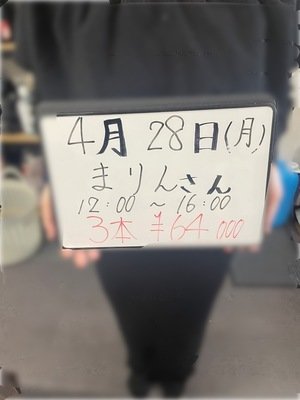 4月 28日(月)
まりんさん
12:00 ~ 16:00
3本 ¥64000